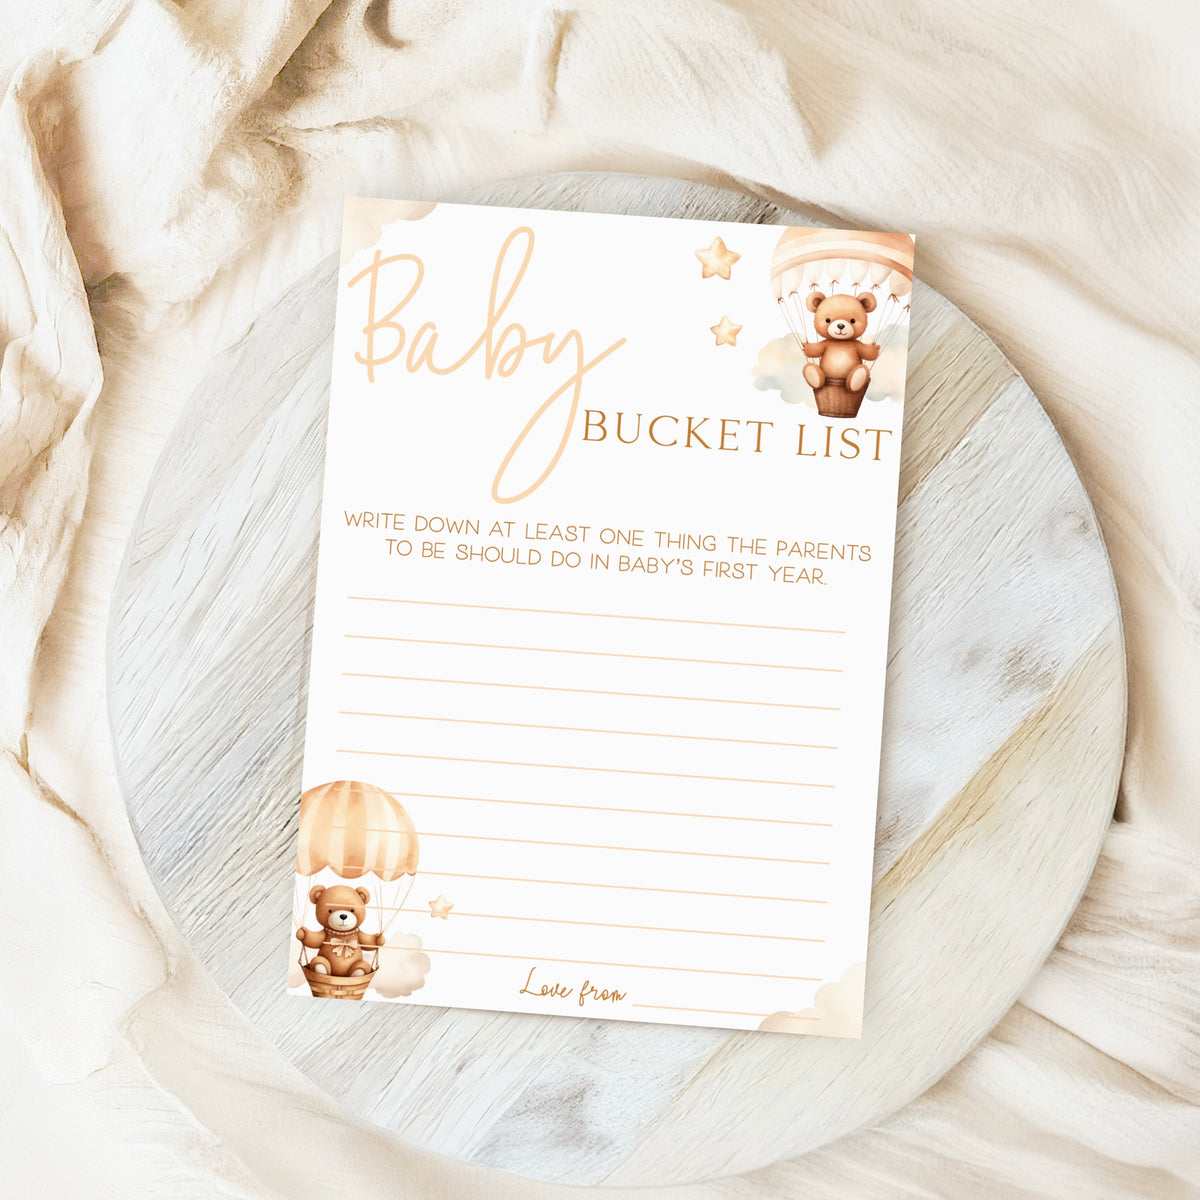 Baby
BUCKET LIST
WRITE DOWN AT LEAST ONE THING THE PARENTS
TO BE SHOULD DO IN BABY'S FIRST YEAR.
Love from